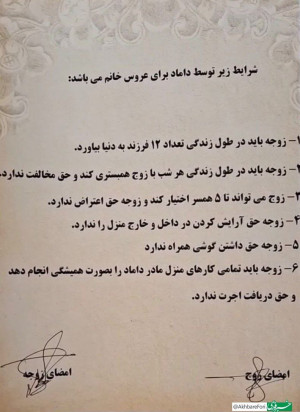 شرایط زیر توسط داماد برای عروس خانم می باشد:
۱- زوجه باید در طول زندگی تعداد ۱۲ فرزند به دنیا بیاورد.
۲- زوجه باید در طول زندگی هر شب با زوج همبستری کند و حق مخالفت ندارد.
۳- زوج می تواند تا ۵ همسر اختیار کند و زوجه حق اعتراض ندارد.
۴- زوجه حق آرایش کردن در داخل و خارج منزل را ندارد.
۵- زوجه حق داشتن گوشی همراه ندارد
۶- زوجه باید تمامی کارهای منزل مادر داماد را بصورت همیشگی انجام دهد
و حق دریافت اجرت ندارد.
امضای زوج
امضای زوجه
@AkhbareFori